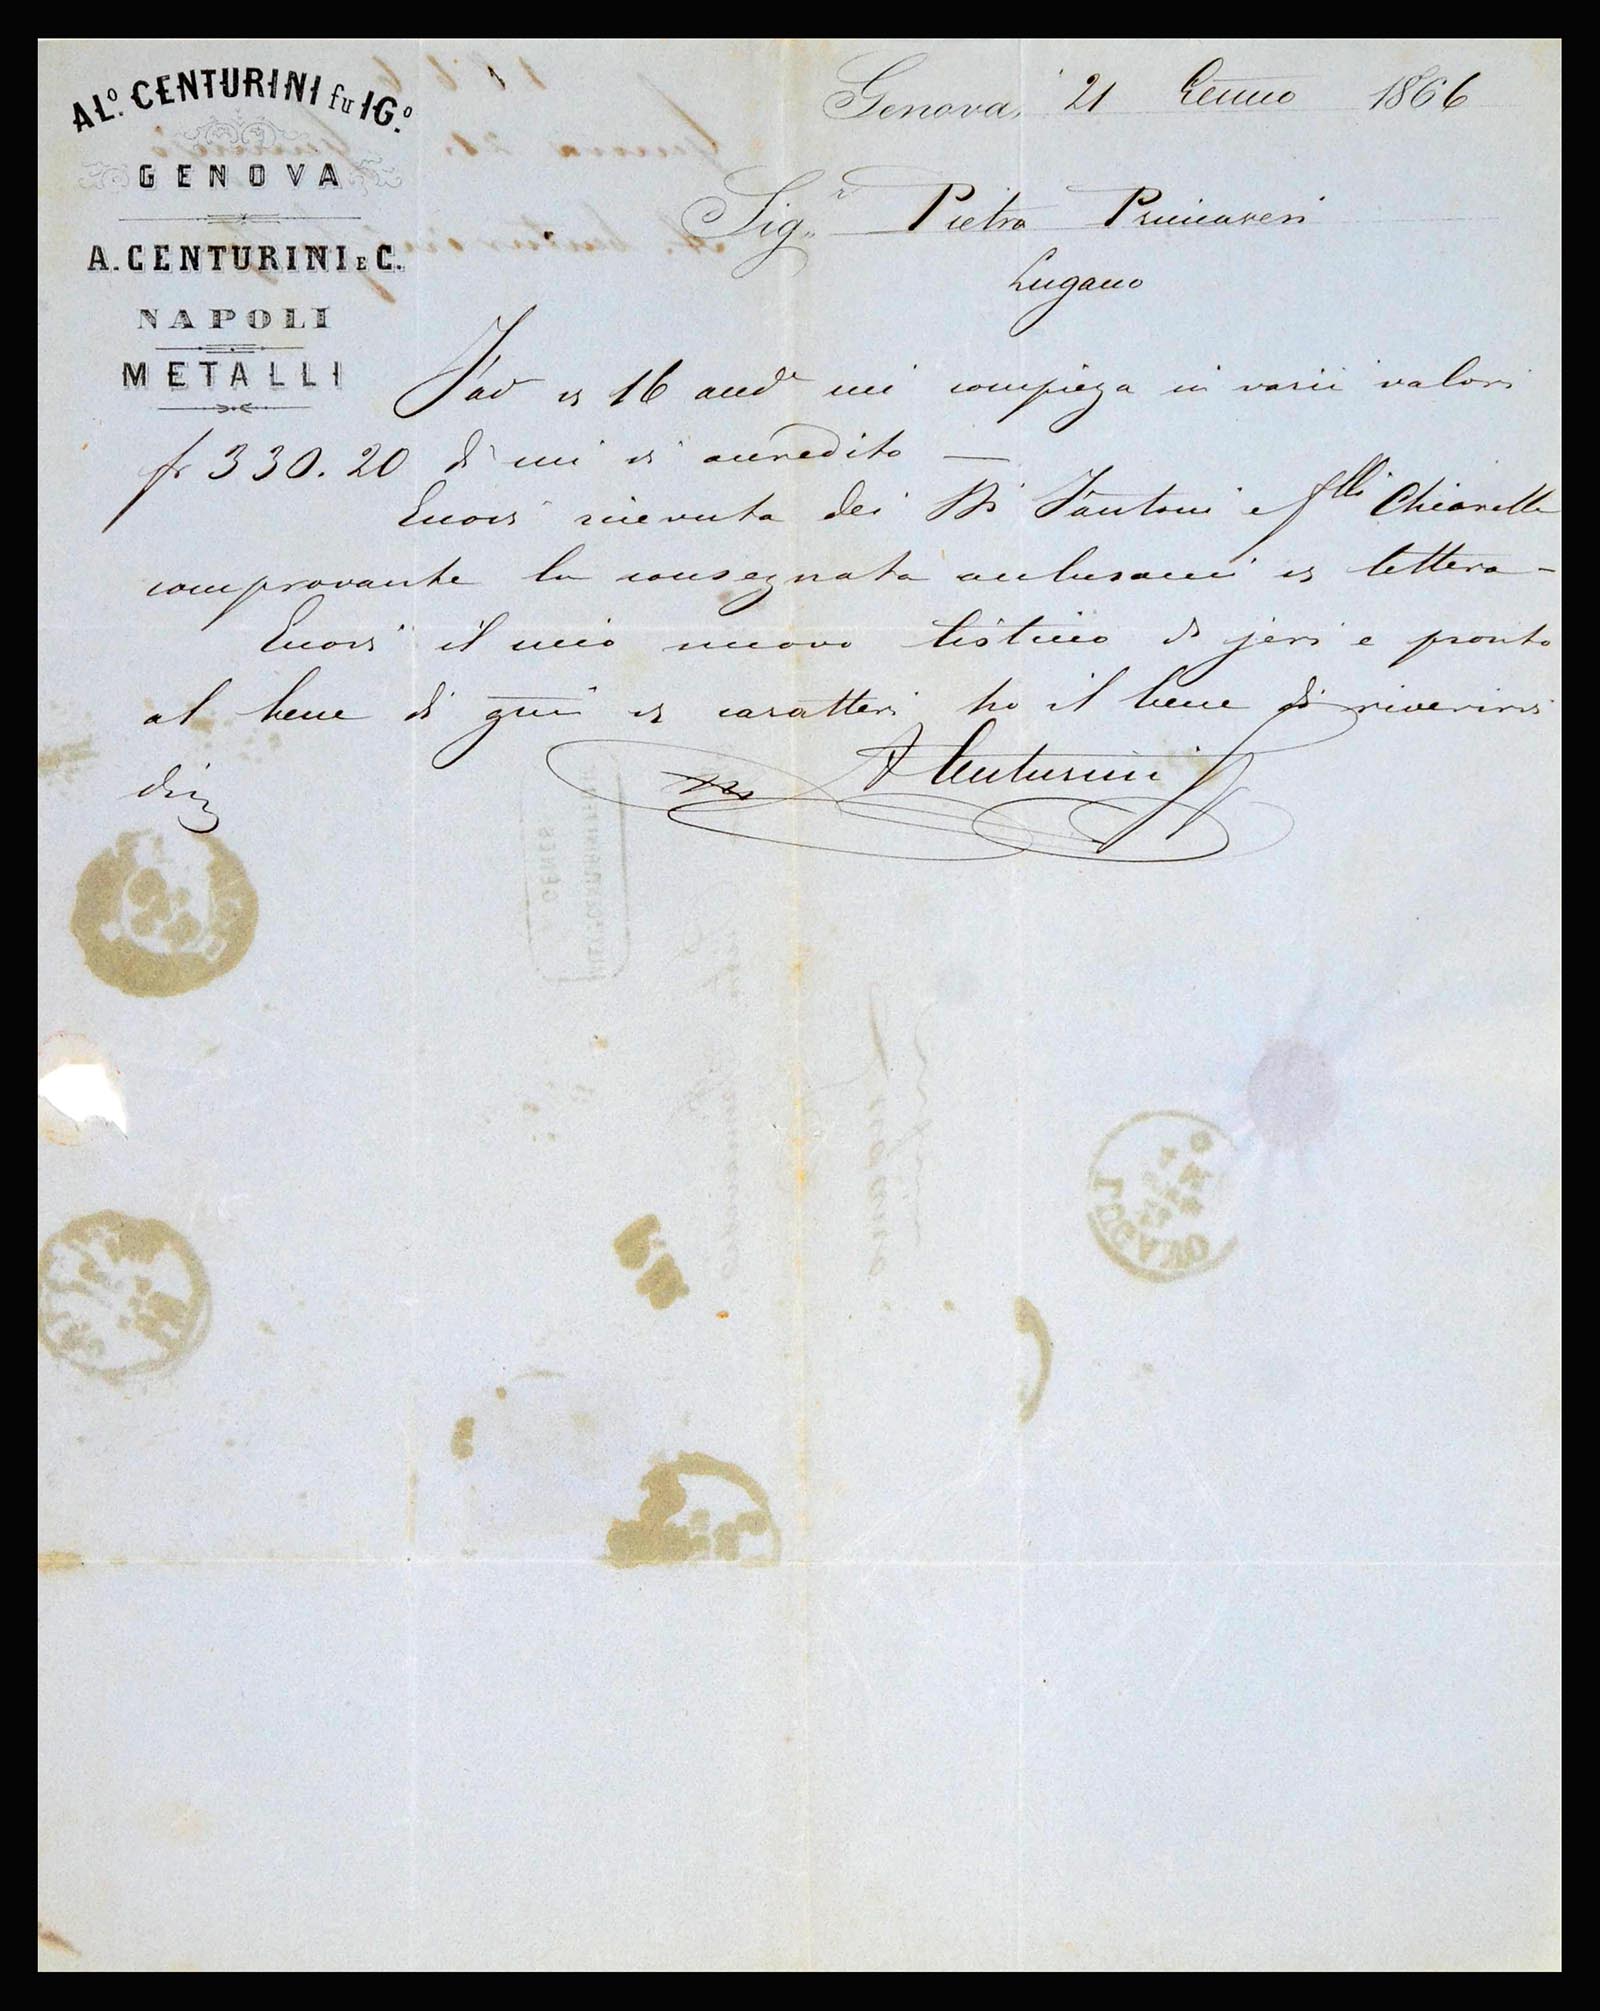 AL.º CENTURINI fu IG.º
GENOVA
A. CENTURINI E C.
NAPOLI
METALLI
Genova, 21 Genno 1866
Sig.r Pietro Primavesi
Lugano
Fav 16 andte mi compiega in varii valori
fr 330.20 di cui si accredito —
Eccovi ricevuta dei Sri Fantoni e flli Chiarella
comprovante la consegnata lettera -
Eccovi il mio nuovo listino di jeri e pronto
al bene di caratteri ho il bene di riverirvi
A Centurini
LUGANO